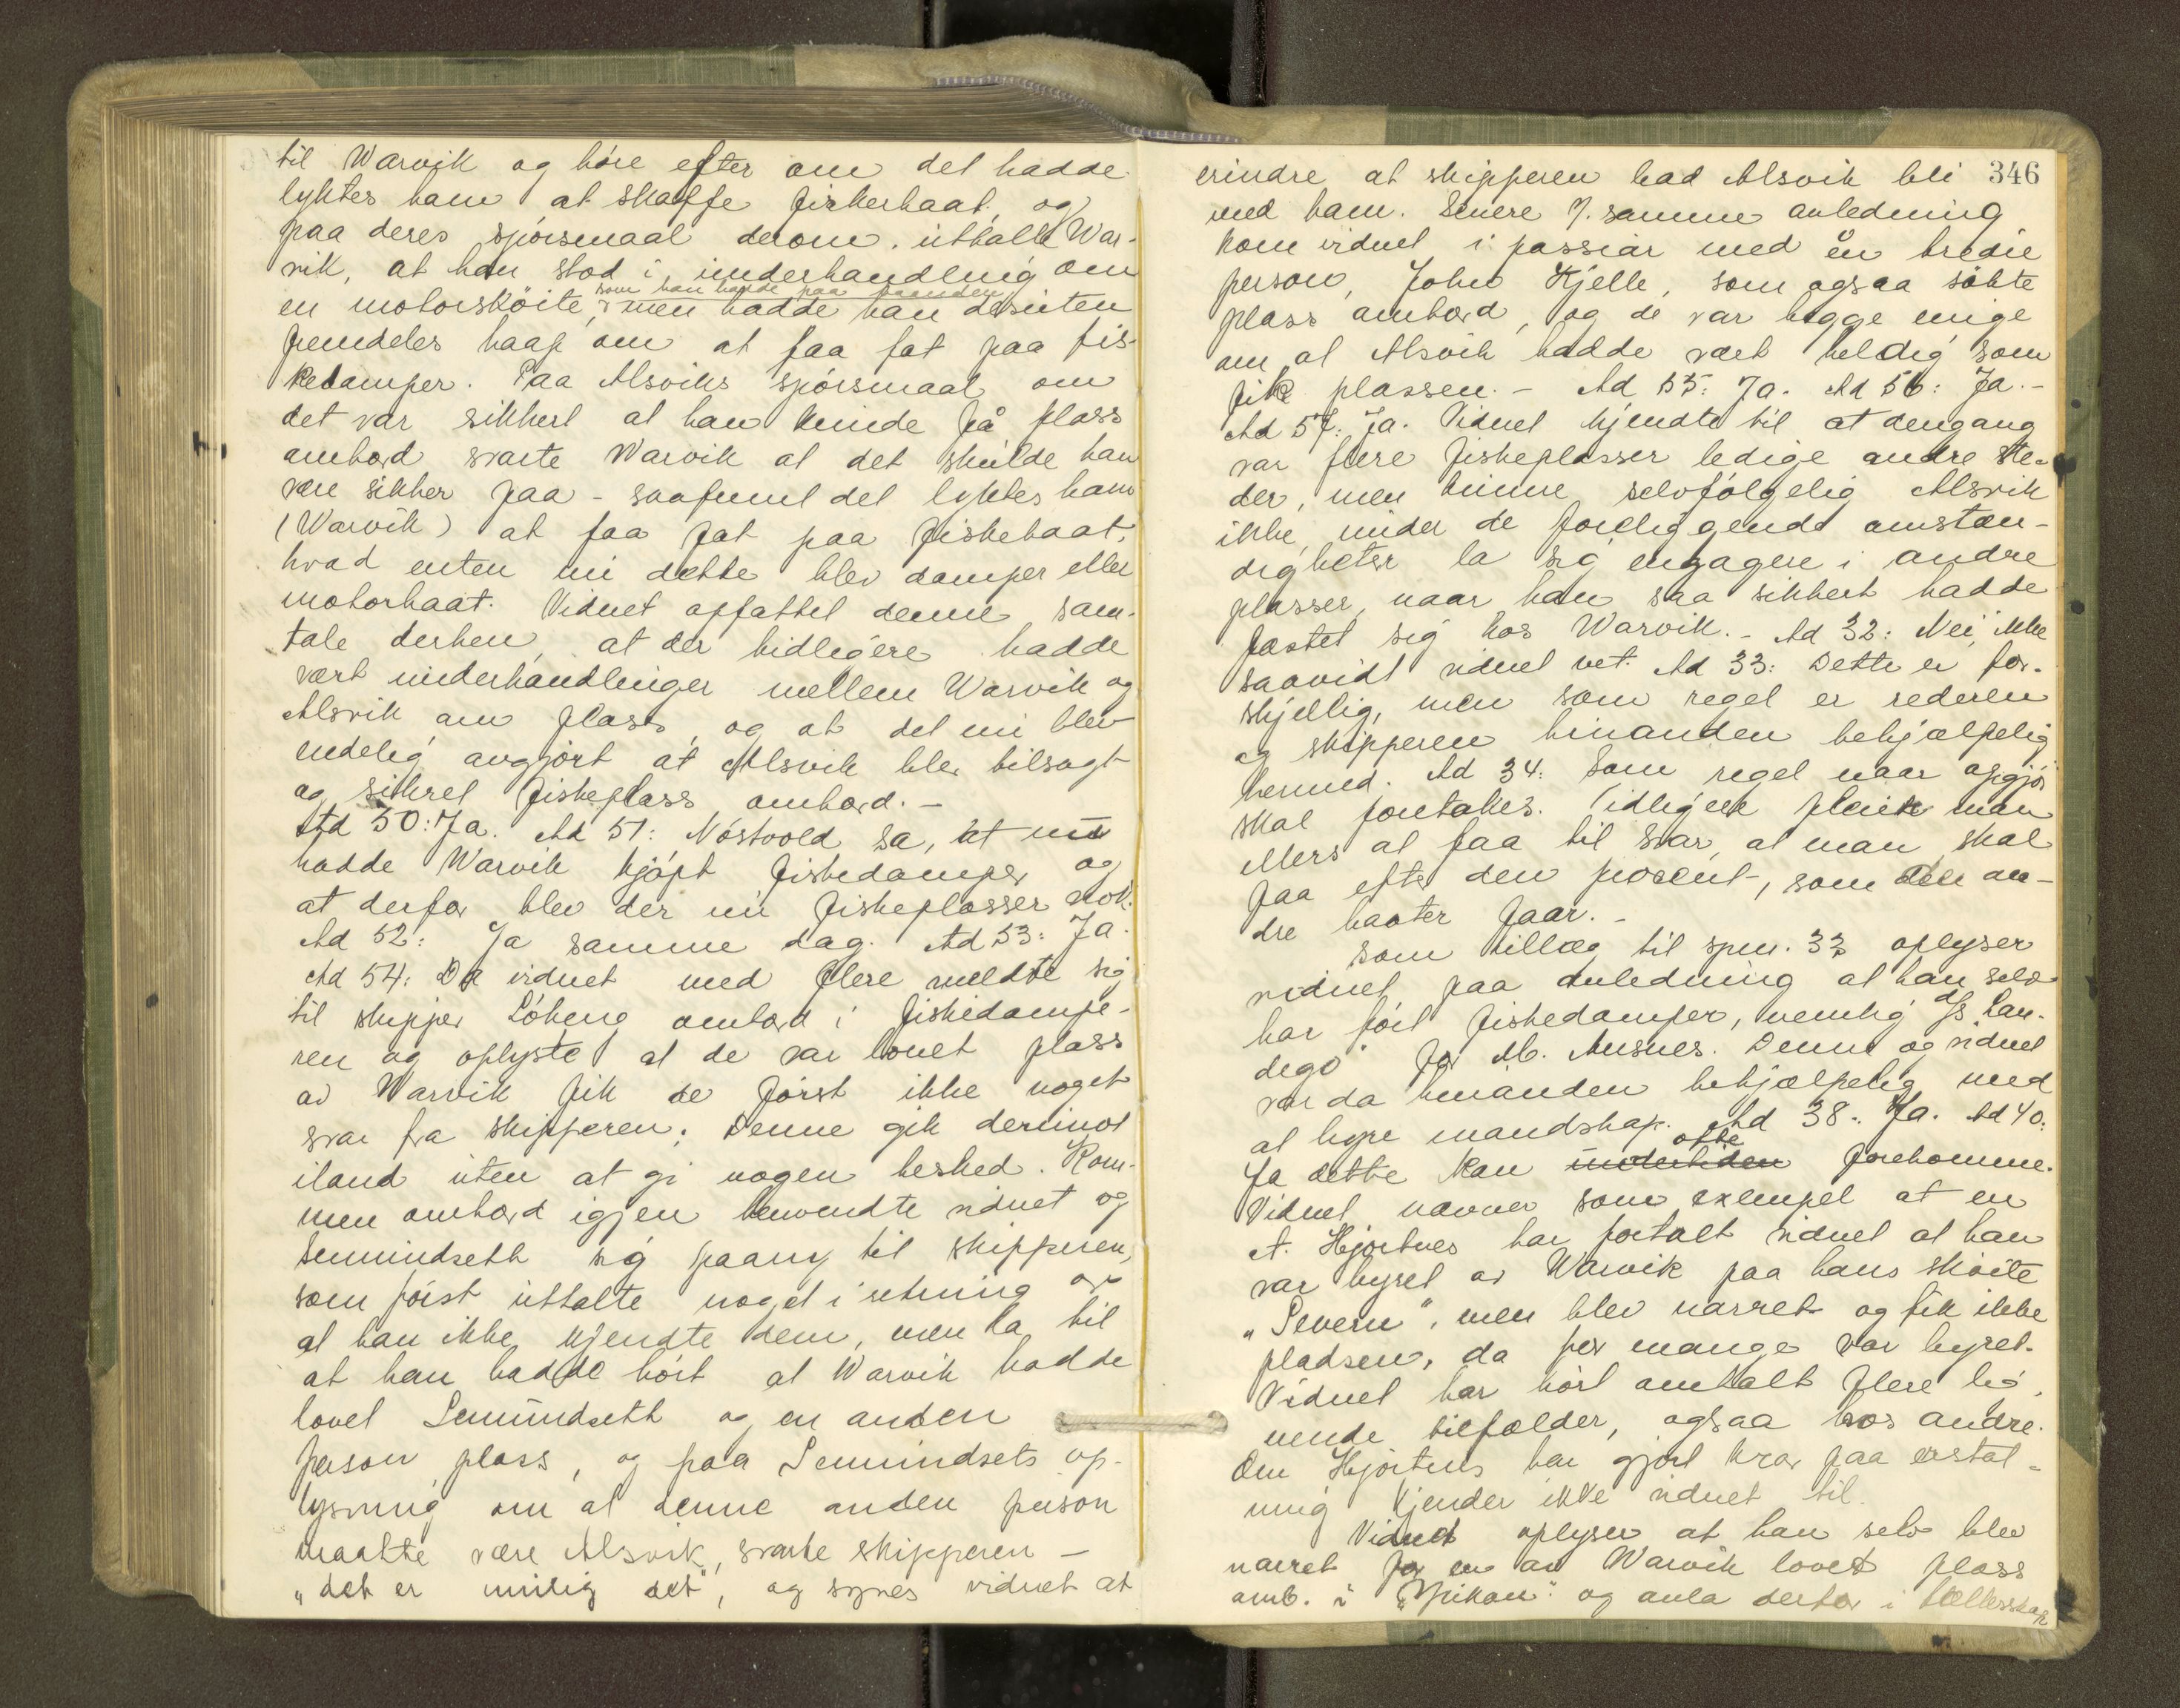 til Warvik og høre efter om det hadde
lyktes ham at skaffe fiskerbaat, og
paa deres spørsmaal derom. uttalte War-
vik, at han stod i underhandling om
en motorskøite, som han hadde paa haanden, men hadde han desuten
fremdeles haap om at faa fat paa fis-
kedamper. Paa Alsviks spørsmaal om
det var sikkert at han kunde få plass
ombord svarte Warvik at det skulde han
være sikker paa - saafremt det lyktes ham
(Warvik) at faa fat paa fiskebaat,
hvad enten nu dette blev damper eller
motorbaat. Vidnet opfattet denne sam-
tale derhen, at der tidligere hadde
vært underhandlinger mellem Warvik og
Alsvik om plass, og at det nu blev
endelig avgjort at Alsvik blev tilsagt
og sikret fiskeplass ombord. -
Ad 50: Ja. Ad 51: Nöstvold sa, at nu
hadde Warvik kjøpt fiskedamper og
at derfor blev der nu fiskeplasser nok.
Ad 52: Ja samme dag. Ad 53: Ja.
Ad 54: Da vidnet med flere meldte sig
til skipper Löheng ombord i fiskedampe-
ren og oplyste at de var lovet plass
av Warvik fik de først ikke noget
svar fra skipperen; Denne gik derimot
iland uten at gi nogen besked. Kom-
men ombord igjen henvendte vidnet og
Semundseth sig paany til skipperen,
som først uttalte noget i retning av
at han ikke kjendte dem, men la til
at han hadde hört at Warvik hadde
lovet Semundseth og en anden
person plass, og paa Semundsets op-
lysning om at denne anden person
maatte være Alsvik, svarte skipperen -
„det er mulig det", og synes vidnet at
346
erindre at skipperen bad Alsvik bli
med ham. Senere i samme anledning
kom vidnet i passiar med en tredie
person, John Kjelle, som ogsaa søkte
plass ombord, og de var begge enige
om at Alsvik hadde vært heldig som
fik plassen. - Ad 55: Ja. Ad 56: Ja. -
Ad 57: Ja. Vidnet kjendte til at dengang
var flere fiskeplasser ledige andre ste-
der, men kunne selvfølgelig Alsvik
ikke under de foreliggende omsten-
digheter la sig engagere i andre
plasser, naar han saa sikkert hadde
fæstet sig hos Warvik. - Ad 32: Nei, ikke
saavidt vidnet vet. Ad 33: Dette er for-
skjellig, men som regel er rederen
og skipperen hinanden behjælpelig
hermed. Ad 34: Som regel naar opgjør
skal foretakes. Tidligere pleier man
ellers at faa til svar, at man skal
faa efter den procent, som de an-
dre baater faar. -
Som tillæg til spm. 33 oplyser
vidnet paa anledning at han selv
har ført fiskedamper, nemlig d/s „Lan-
dego" for M. Ausnes. Denne og vidnet
var da hinanden behjælpelig med
at hyre mandskap. Ad 38: Ja. Ad 40:
Ja dette kan undertiden ofte forekomme.
Vidnet nævner som exempel at en
A. Hjortnes har fortalt vidnet at han
var hyret av Warvik paa hans skøite
„Severn", men blev narret og fik ikke
pladsen, da for mange var hyret.
Vidnet har hørt omtalt flere lig-
nende tilfælder, ogsaa hos andre.
Om Hjortnes har gjort krav paa erstat-
ning kjender ikke vidnet til.
Vidnet oplyser at han selv blev
narret for en av Warvik lovet plass
omb. i og anla derfor i fællesskap